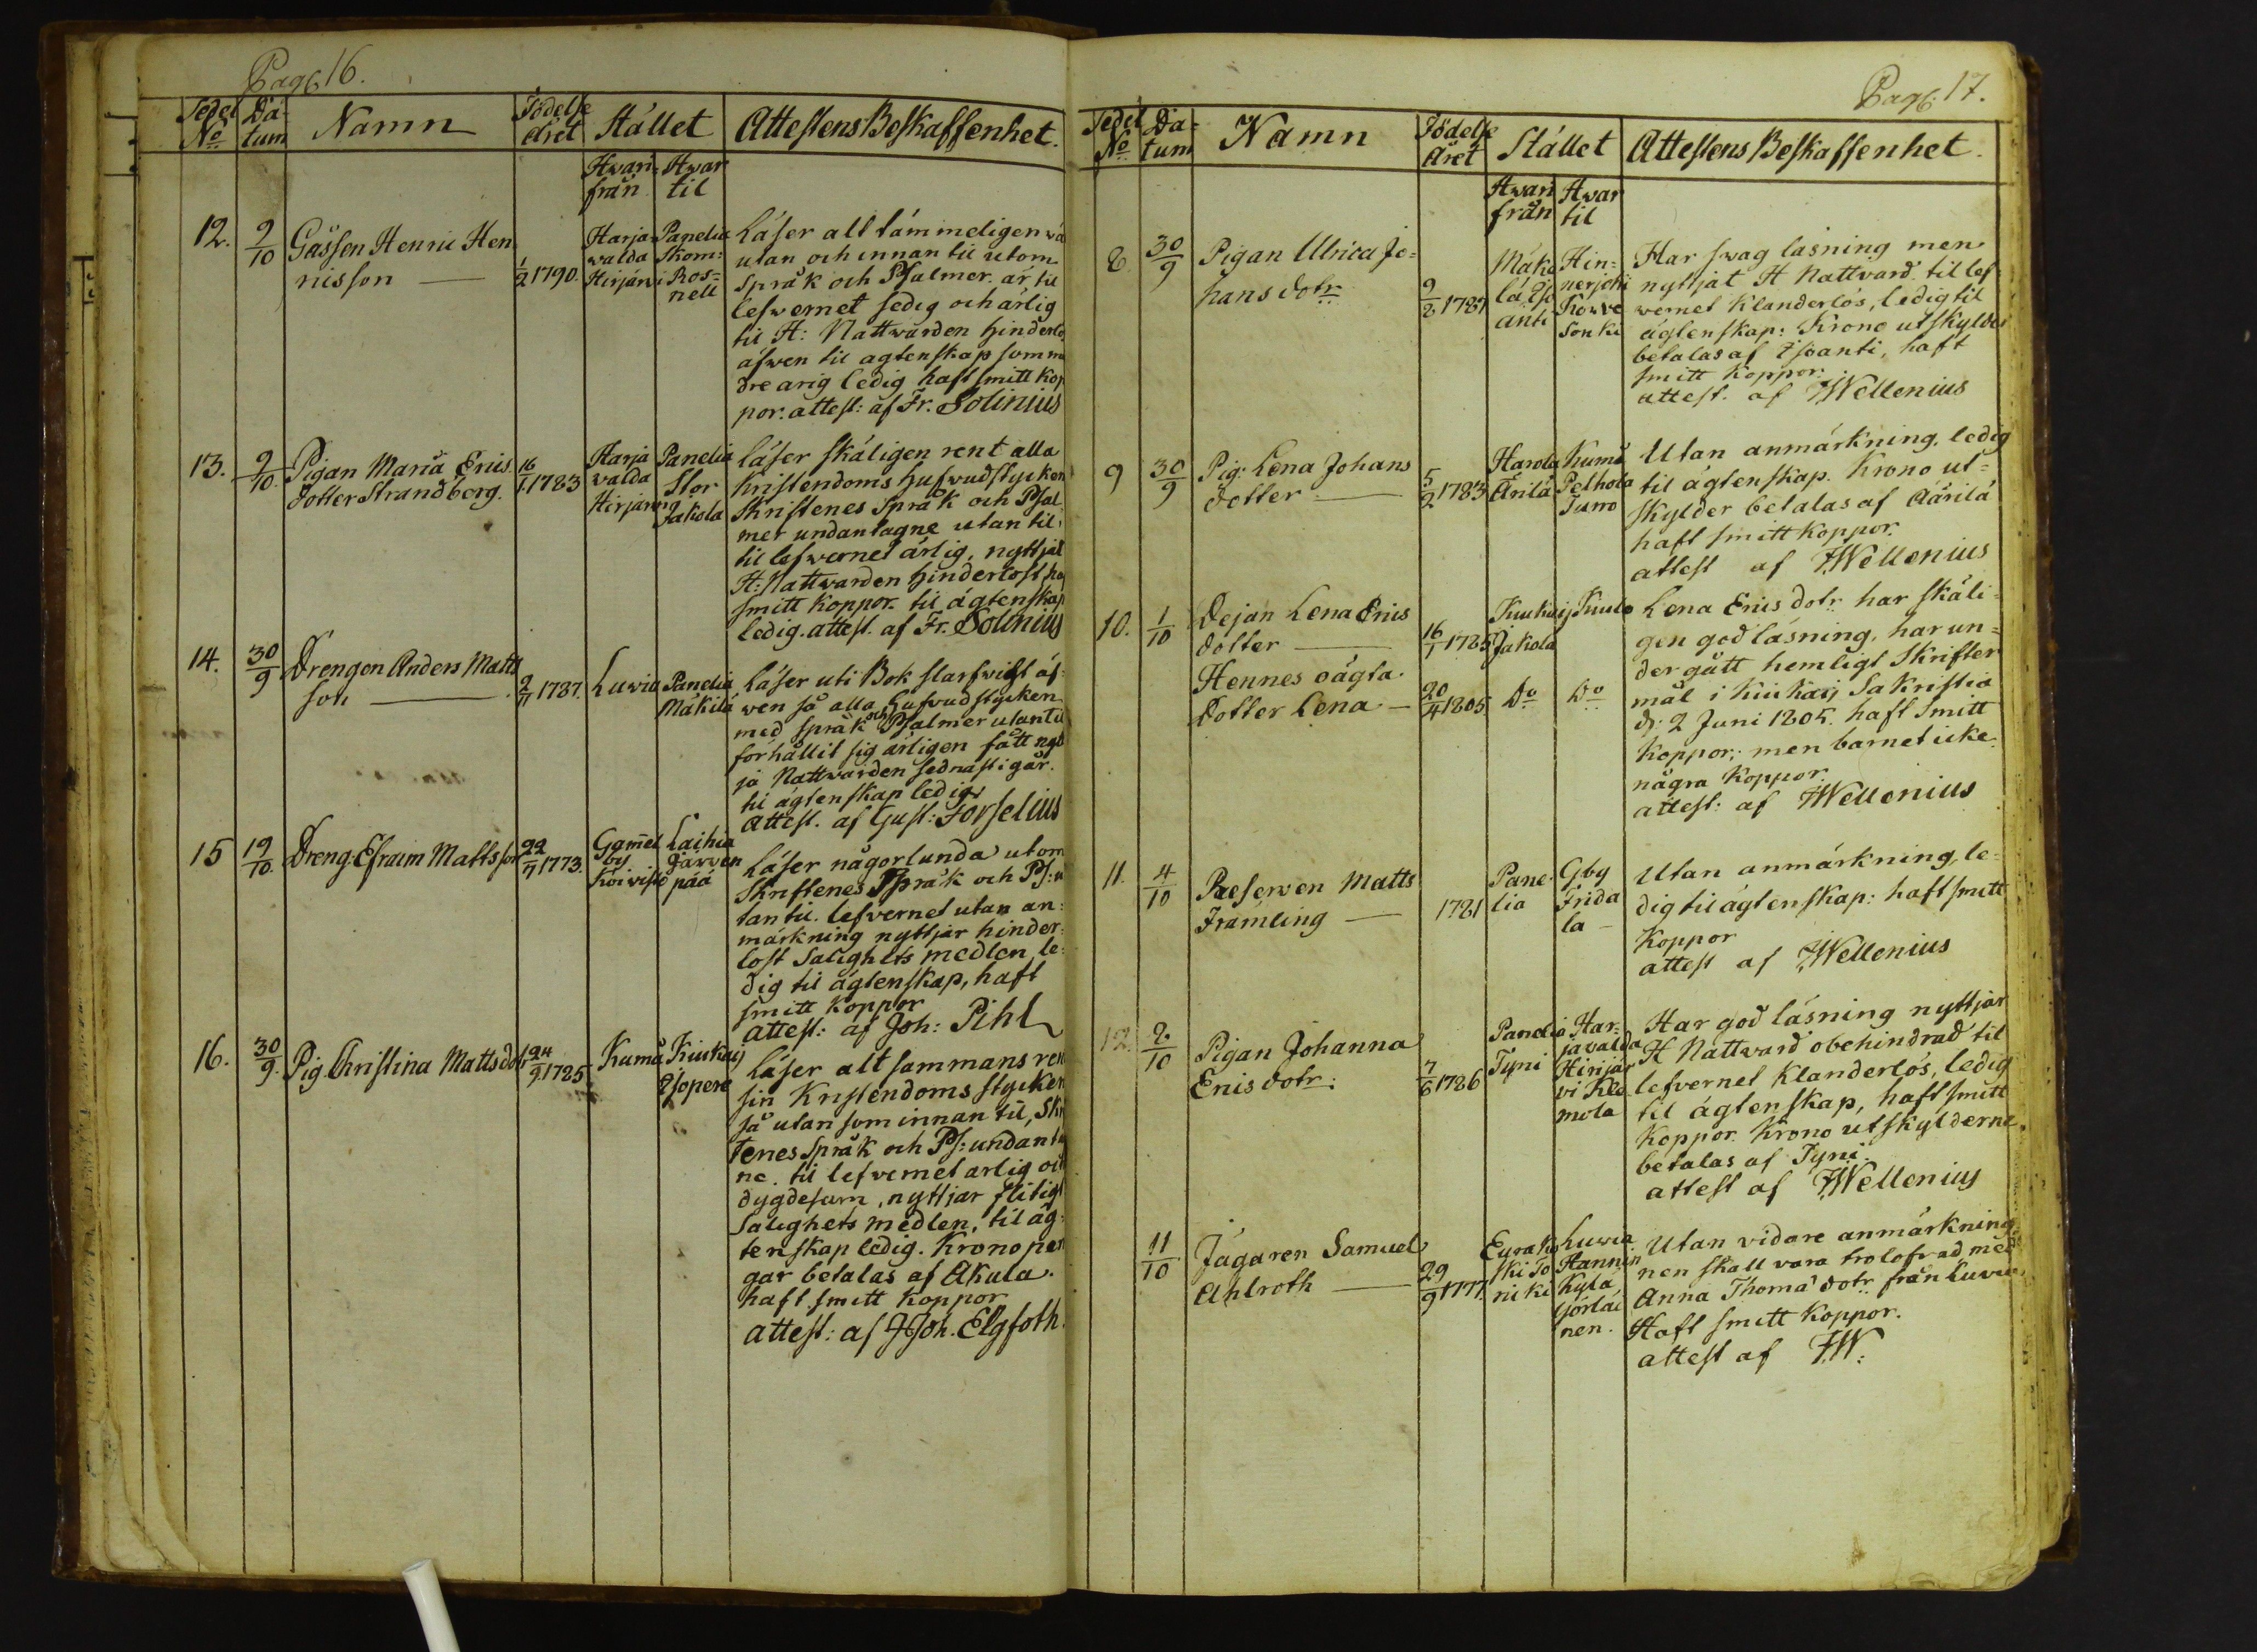 Pag: 16.
Sedel No Datum Namn Födelse Året Stället Attestens Beskaffenhet.
Hwari från Hwar til
12. 9/10 Gåssen Henric Hen
ricsson — 1/2 1790.
Harja
walda
Hirjärwi
Panelia
Skom:
Ros=
nell
Läser alt tämmeligen wä
utan och innan til utom
Språk och Psalmer. är til
lefwernet sedig och ärlig
til H: Nattwarden hinderlö
äfwen til ägtenskap som mi
dre årig ledig haft smitt kop
por. attest: af Fr. Polinius
13. 9/10. Pigan Maria Erics
dotter Strandberg. 16/1 1783
Harja
walda
Hirjärwi
Panelia
Stor
Jakola
Läser skäligen rent alla
kristendoms hufwudstycken
Skriftenes Språk och Psal
mer undantagne utan til.
til lefwernet ärlig, nyttjat
H: Nattwarden hinderlöst ha
smitt koppor til ägtenskap
ledig. attest. af Fr. Polinius
14. 30/9 Drengen Anders Matts
son — 2/11 1787. Luvia
Panelia
Mäkilä
Läser uti Bok slarfwigt äf
wen så alla Hufvudstycken
med språk och Psalmer utantil
förhållit sig ärligen fått nyt
ja Nattwarden sednast i går.
til ägtenskap ledig
attest. af Gust: Forselius
15 19/10. Dreng: Efraim Mattsson 22/7 1773.
Gamel
by
Koivisto
Laihia
Järven
pää
Läser någorlunda utom
Skriftenes Språk och Ps: u
tantil. lefvernet utan an=
märkning nyttjar hinder=
löst Salighets medlen, le=
dig til ägtenskap, haft
smitt koppor
attest: af Joh: Pihl
16. 30/9. Pig. Christina Mattsdotr 24/9 1785.
Kumå
Kiukais
Isopere
Läser alt sammans ren
sin Kristendoms stycken
så utan som innan til, Skri
tenes Språk och Ps: undanta
ne. til lefvernet ärlig och
dygdesam, nyttjar flitigt
Salighets medlen, til äg=
tenskap ledig. Krono pen
gar betalas af Akula.
haft smitt koppor
attest: af J Joh. Elgfoth.
Pag: 17.
Sedel No Datum Namn Födelse Året Stället Attestens Beskaffenhet.
Hwari från Hwar til
8 30/9 Pigan Ulrica Jo=
hansdotr 9/2 1787
Mäki
lä Iso
anti
Hin=
nerjoki
Kowe
Sonki
Har swag läsning men
nyttjat H Nattvard. til lef
wernet klanderlös, ledig til
ägtenskap: Krono utskylder
betalas af Isoanti, haft
smitt koppor.
attest. af FWellenius
9 30/9 Pig: Lena Johans
dotter — 5/2 1783
Harola
Ärilä
Kumå
Pelhola
Juno
Utan anmärkning. ledig
til ägtenskap. Krono ut=
skylder betalas af Äärilä
haft smitt koppor.
attest af FWellenius
10. 1/10 Dejan Lena Erics
dotter — 16/1 1785
Kiukais
Jakola
Kiulo
Hennes oägta
dotter Lena — 20/4 1805. Do Do
Lena Ericsdotr har skäli=
gen god läsning, har un=
der gått hemligt Skrifter
mål i Kiukais Sakristia
d: 2 Juni 1805. haft smitt
koppor; men barnet icke
några koppor.
attest: af FWellenius
11. 4/10 Reserven Matts
Främling — 1781
Pane
lia
Gby
Frida
la —
Utan anmärkning, le=
dig til ägtenskap: haft smitt
koppor
attest af FWellenius
12. 2/10 Pigan Johanna
Ericsdotr: 7/6 1786
Panelia
Tyni
Har=
javalda
Hirijär
vi Kle
mola
Har god läsning nyttjar
H Nattvard obehindrad til
lefvernet klanderlös, ledig
til ägtenskap, haft smitt
koppor. Krono utskylderna
betalas af Tyni.
attest af FWellenius
11/10 Jägaren Samuel
Ahlroth — 29/9 1777.
Eurakos
ki To
niki
Luvia
Hannin
kylä
Görläi
nen.
Utan vidare anmärkning
nen skall vara trolofvad med
Anna Thomædotr från Luvia
Haft smitt koppor.
attest af FW: